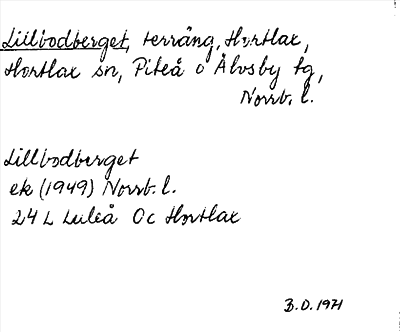 Lillbodberget, terräng, Hortlax,
Hortlax sn, Piteå o Älvsby tg,
Norrb. l.
Lillbodberget
ek (1949) Norrb. l.
24 L Luleå Oc Hortlax
B.D. 1971